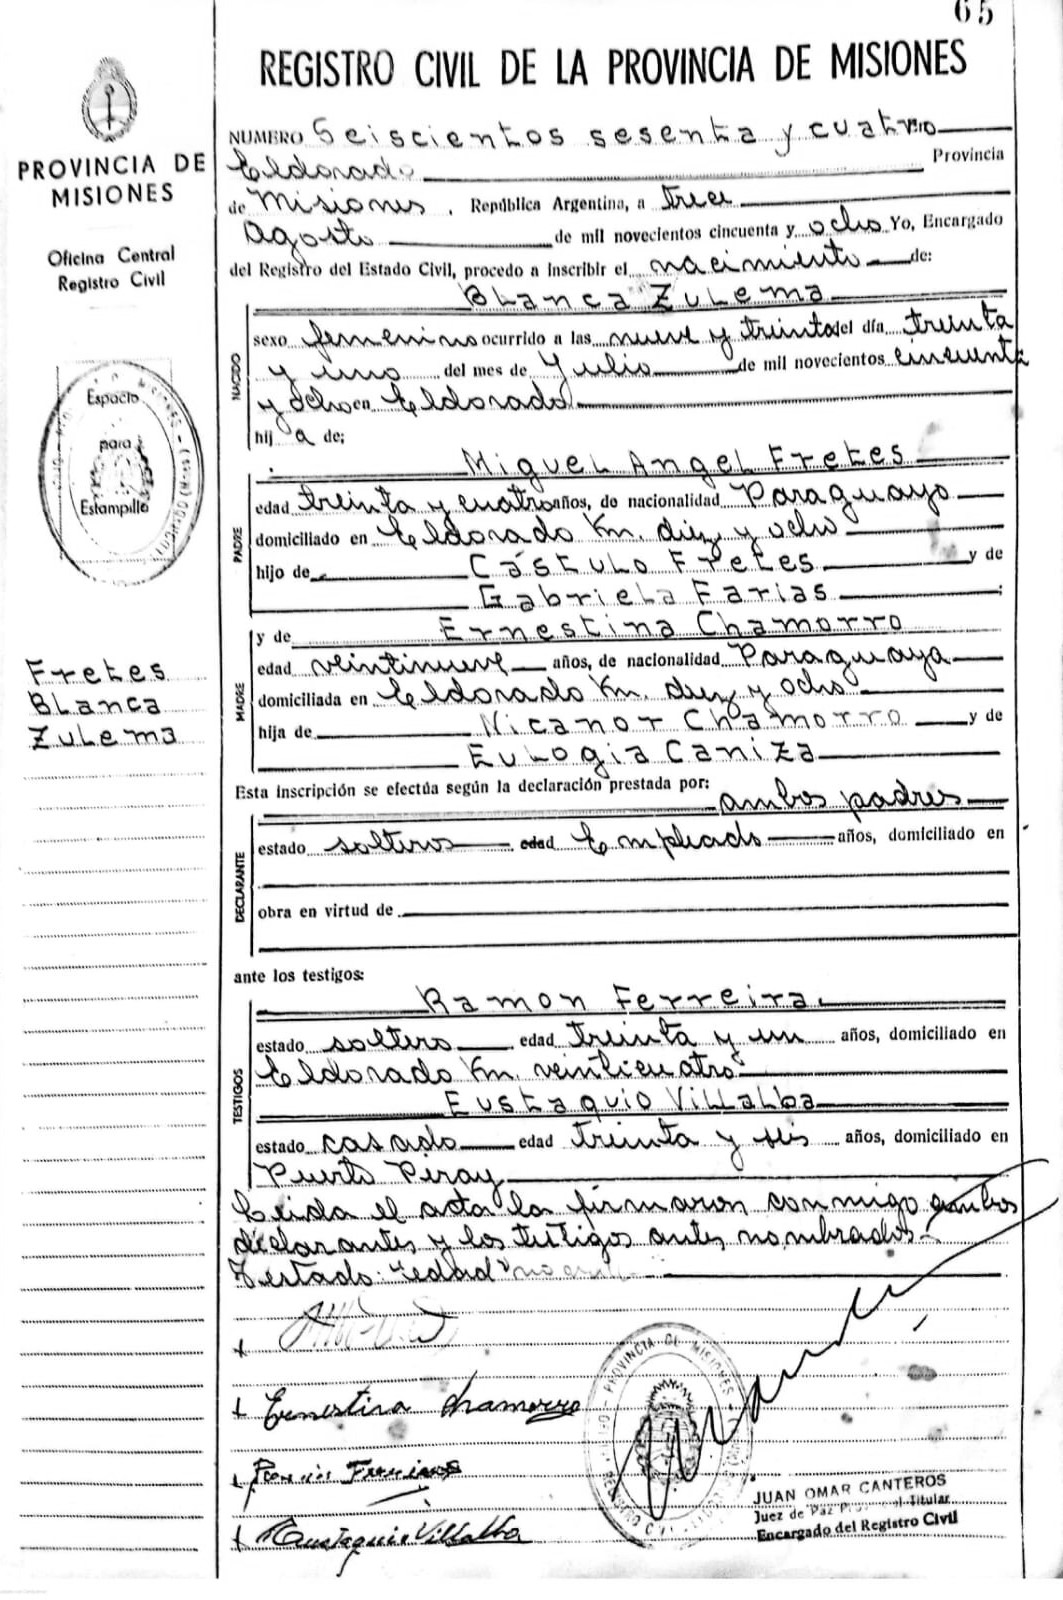 65
REGISTRO CIVIL DE LA PROVINCIA DE MISIONES
PROVINCIA DE
MISIONES
Oficina Central
Registro Civil
Espacio
para
Estampilla
Fretes
Blanca
Zulema
NUMERO Seiscientos sesenta y cuatro
Eldorado Provincia
de Misiones, República Argentina, a trece
Agosto de mil novecientos cincuenta y ocho Yo, Encargado
del Registro del Estado Civil, procedo a inscribir el nacimiento de:
Blanca Zulema
NACIDO
sexo femenino ocurrido a las nueve y treinta del día treinta
y uno del mes de Julio de mil novecientos cincuenta
y ocho en Eldorado
hij a de;
Miguel Angel Fretes
PADRE
edad treinta y cuatro años, de nacionalidad Paraguayo
domiciliado en Eldorado Km. diez y ocho
hijo de Cástulo Fretes y de
Gabriela Farias;
MADRE
y de Ernestina Chamorro
edad veintinueve años, de nacionalidad Paraguaya
domiciliada en Eldorado Km. diez y ocho
hija de Nicanor Chamorro y de
Eulogia Caniza
Esta inscripción se efectúa según la declaración prestada por:
ambos padres
DECLARANTE
estado solteros edad Empleado años, domiciliado en
obra en virtud de
ante los testigos:
Ramon Ferreira.
TESTIGOS
estado soltero edad treinta y un años, domiciliado en
Eldorado Km veinticuatro
Eustaquio Villalba
estado casado edad treinta y seis años, domiciliado en
Puerto Piray
Leida el acta la firmaron conmigo ambos
declarantes y los testigos antes nombrados.-
Testado: "edad" no
Ernestina Chamorro
Eustaquio Villalba
PROVINCIA DE MISIONES
JUAN OMAR CANTEROS
Juez de Paz Titular
Encargado del Registro Civil